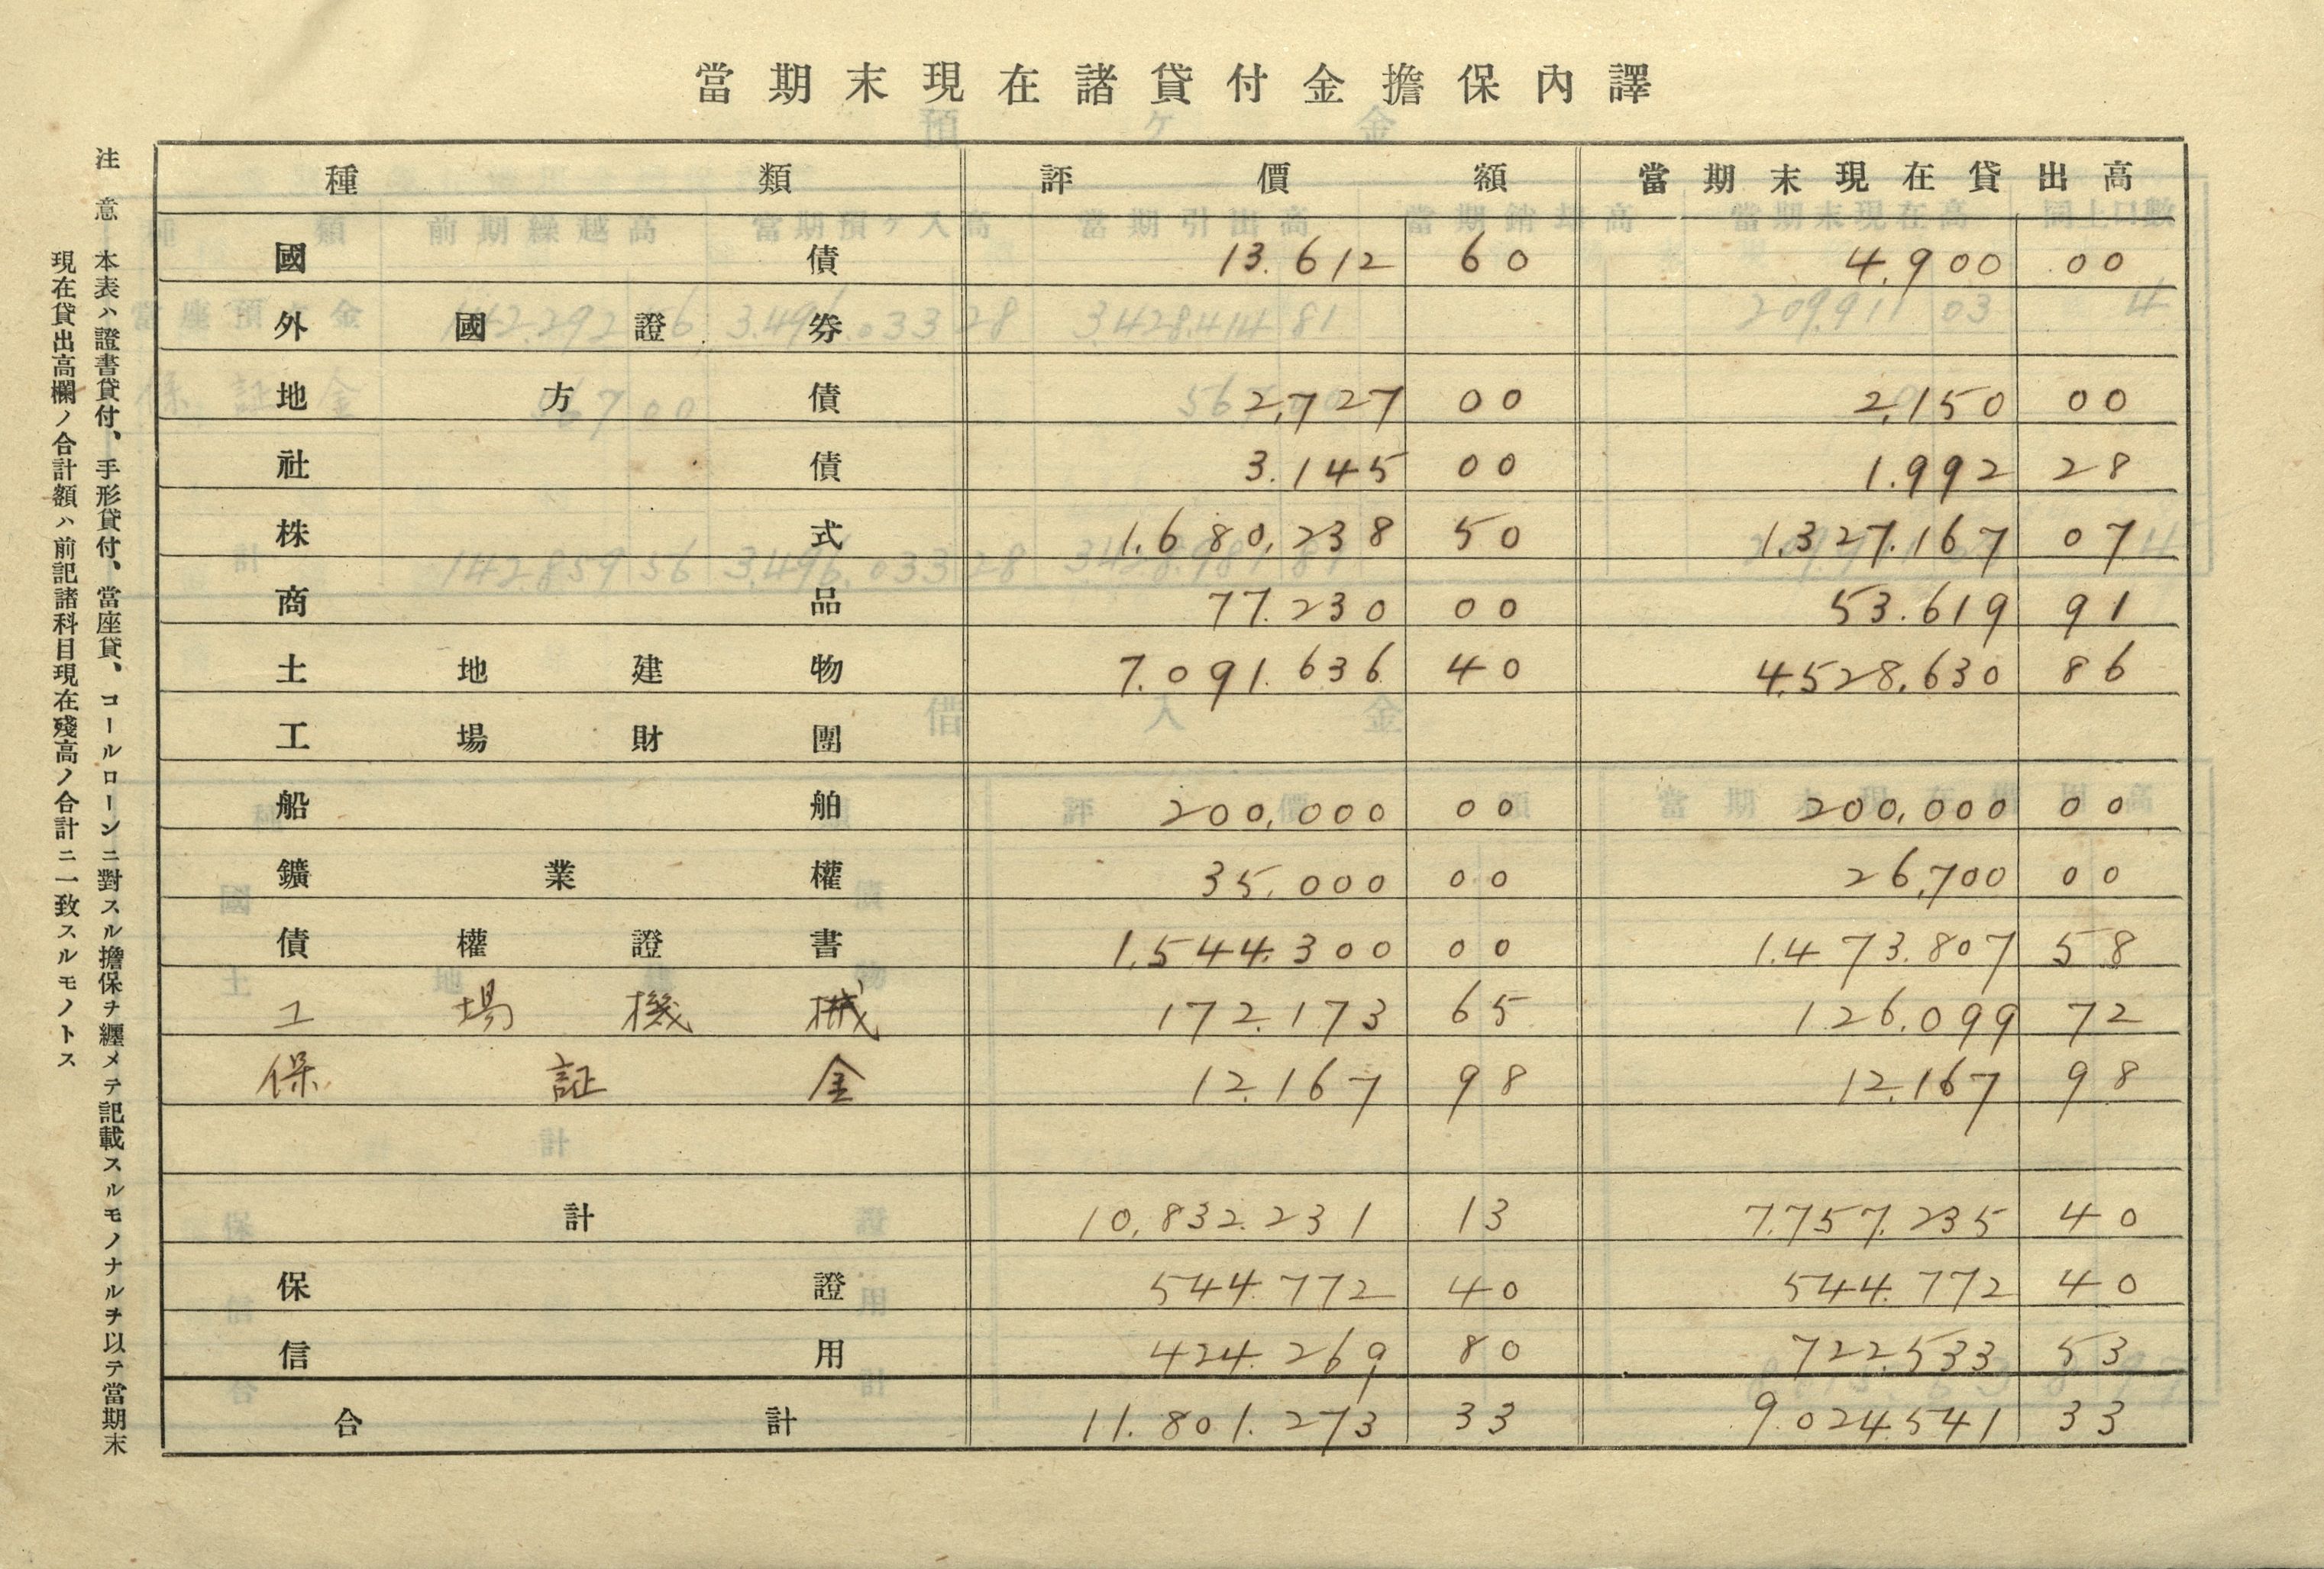 當期末現在諸貸付金擔保內譯
種類 評價額 當期末現在貸出高
國債 13.612 60 4.900 00
外國證券
地方債 2,727 00 2,150 00
社債 3.145 00 1.992 28
株式 1,680,238 50 1.327.167 07
商品 77.230 00 53.619 91
土地建物 7.091.636 40 4.528,630 86
工場財團
船舶 200,000 00 200,000 00
鑛業權 35,000 00 26,700 00
債權證書 1,544,300 00 1.473.807 58
工場機械 172.173 65 126.099 72
保証金 12.167 98 12.167 98
計 10,832.231 13 7.757.235 40
保證 544.772 40 544.772 40
信用 424.269 80 722.533 53
合計 11.801.273 33 9.024.541 33
注意 本表ハ證書貸付、手形貸付、當座貸、コールローンニ對スル擔保ヲ纒メテ記載スルモノナルヲ以テ當期末
現在貸出高欄ノ合計額ハ前記諸科目現在殘高ノ合計ニ一致スルモノトス